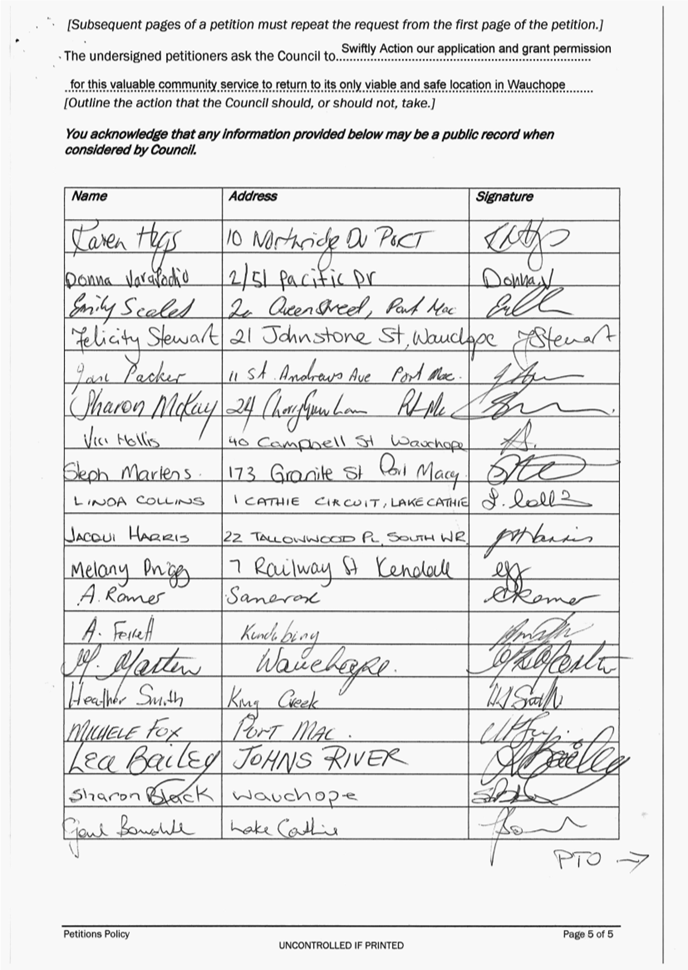 [Subsequent pages of a petition must repeat the request from the first page of the petition.]
The undersigned petitioners ask the Council to....Swiftly Action our application and grant permission
for this valuable community service to return to its only viable and safe location in Wauchope
[Outline the action that the Council should, or should not, take.]
You acknowledge that any information provided below may be a public record when
considered by Council.
Name Address Signature
Karen 10 Northridge Dv
Donna 2/51 Pacific Dr Donna.V
Emily Port Mac
Felicity Stewart 21 Johnstone St, Wauchope FStewart
Packer 11 St. Andrews Ave Port Mac.
Sharon McKay 24
Vici Hollis 40 Campbell St Wauchope
Steph Martens. 173 Granite St Port Macq
LINDA COLLINS 1 CATHIE CIRCUIT, LAKE CATHIE
JACQUI HARRIS 22 TALLOWWOOD PL, SOUTH WR
Melany 7 Railway St Kendall
A. Ramer
A.
M. Marten Wauchope.
Heather Smith King Creek
MICHELE FOX PORT MAC.
Lea BAILEY JOHNS RIVER Bailey
Sharon Black Wauchope
Lake Cathie
PTO →
Petitions Policy Page 5 of 5
UNCONTROLLED IF PRINTED